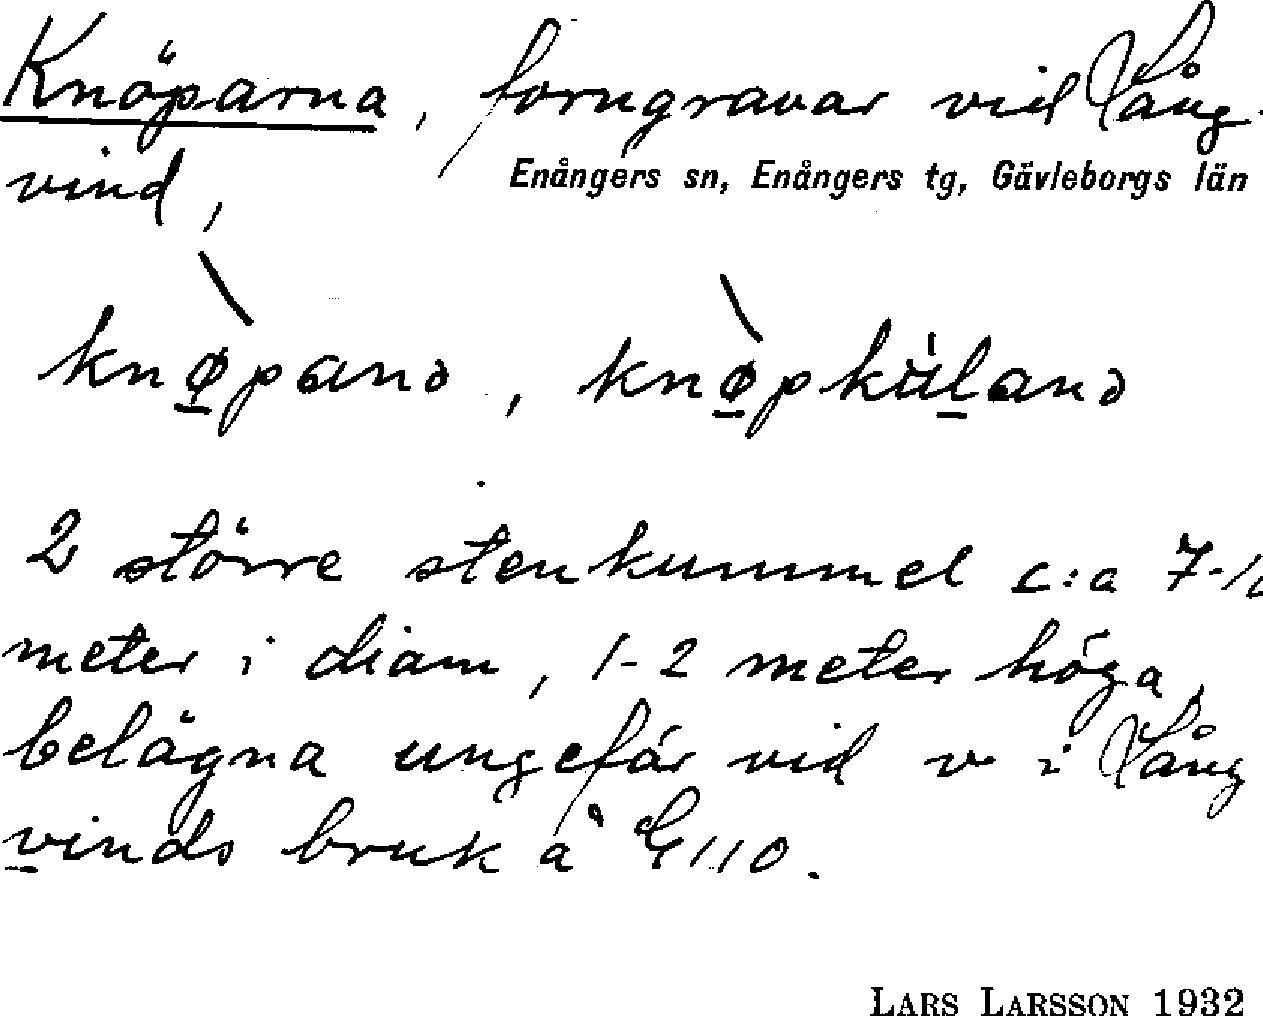 Knöparna, forngravar vid Lång-
vind,
Enångers sn, Enångers tg, Gävleborgs län
knø̱̀panə, knø̱̀pkúl̠anə
2 större stenkummel c:a 7-10
meter i diam, 1-2 meter höga,
belägna ungefär vid v i Lång
vinds bruk å G 110.
LARS LARSSON 1932